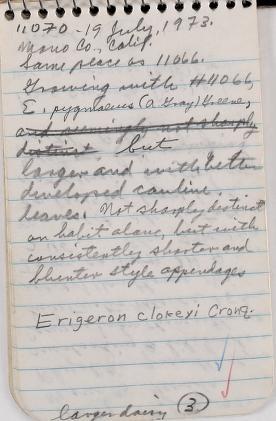 11070 - 19 July, 1973.
Mono Co., Calif.
Same place as 11066.
Growing with #11066,
E. pygmaeus (A. Gray) Greene,
and seemingly not sharply
distinct but
larger and with better
developed cauline
leaves. Not sharply distinct
on habit alone, but with
consistently shorter and
blunter style appendages
Erigeron clokeyi Cronq.
larger daisy 3